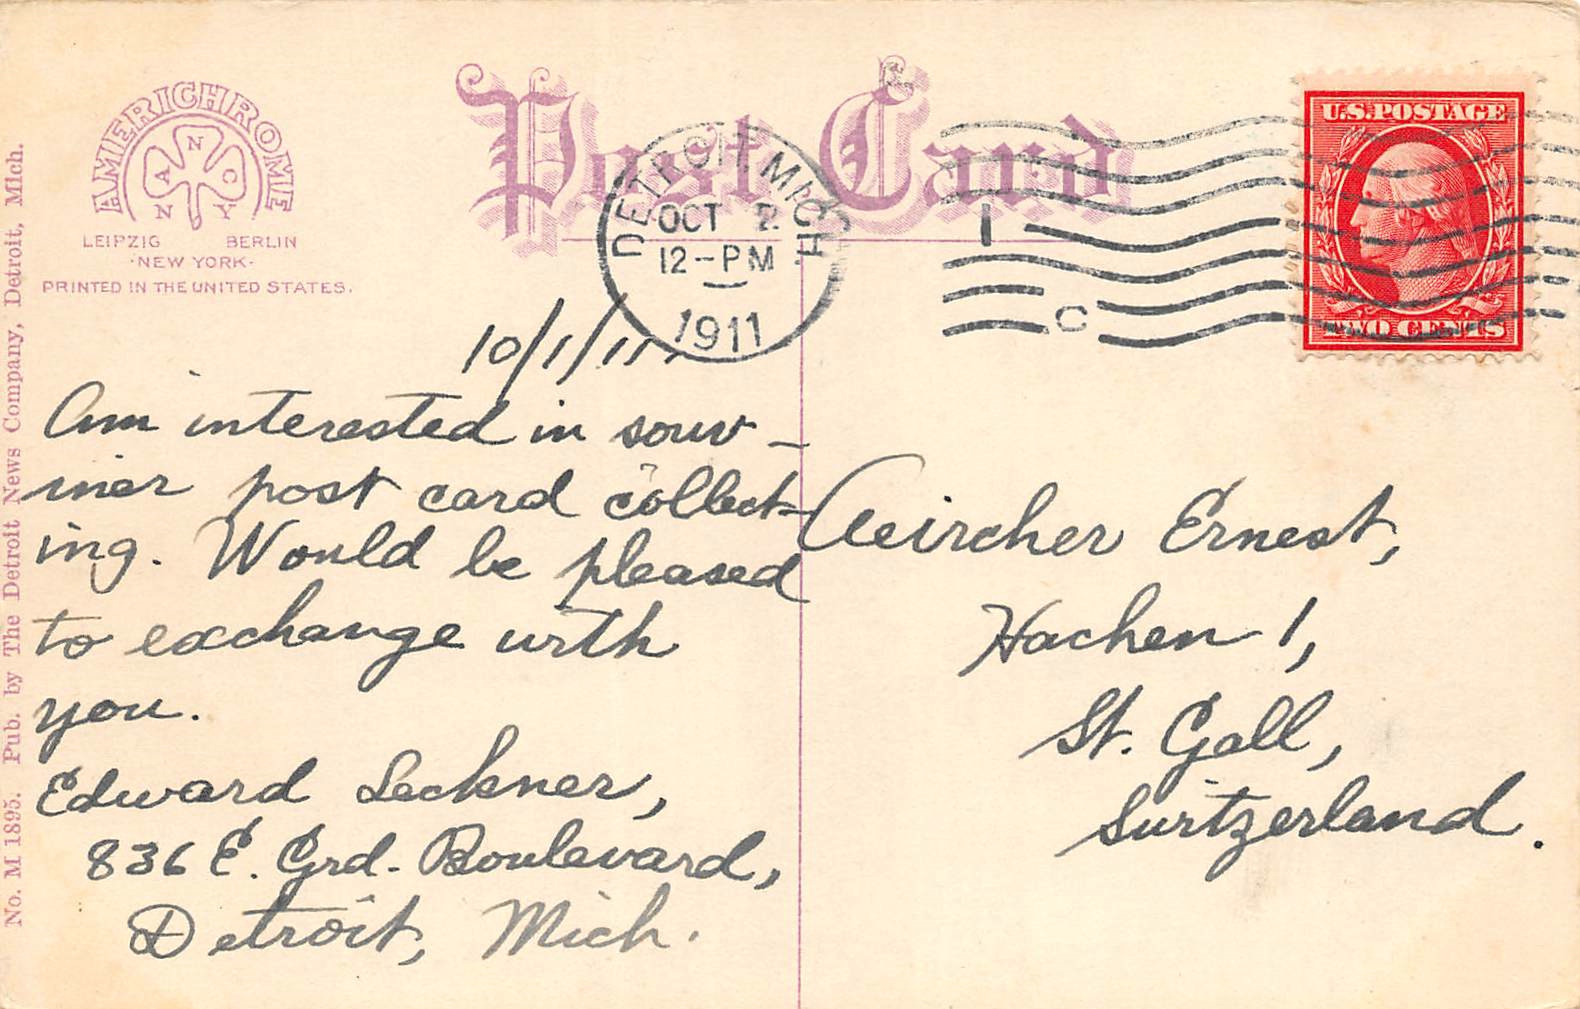 AMERICHROME
N
A C
N Y
LEIPZIG BERLIN
·NEW YORK·
PRINTED IN THE UNITED STATES.
Post Card
DETROIT, MICH.
OCT 2
12-PM
1911
1
C
U.S. POSTAGE
TWO CENTS
No. M 1895. Pub. by The Detroit News Company, Detroit, Mich.
10/1/11.
Am interested in souv-
iner post card collect-
ing. Would be pleased
to exchange with
you.
Edward Leckner,
836 E. Grd. Boulevard,
Detroit, Mich.
Ernest,
Hachen 1,
St. Gall,
Switzerland.